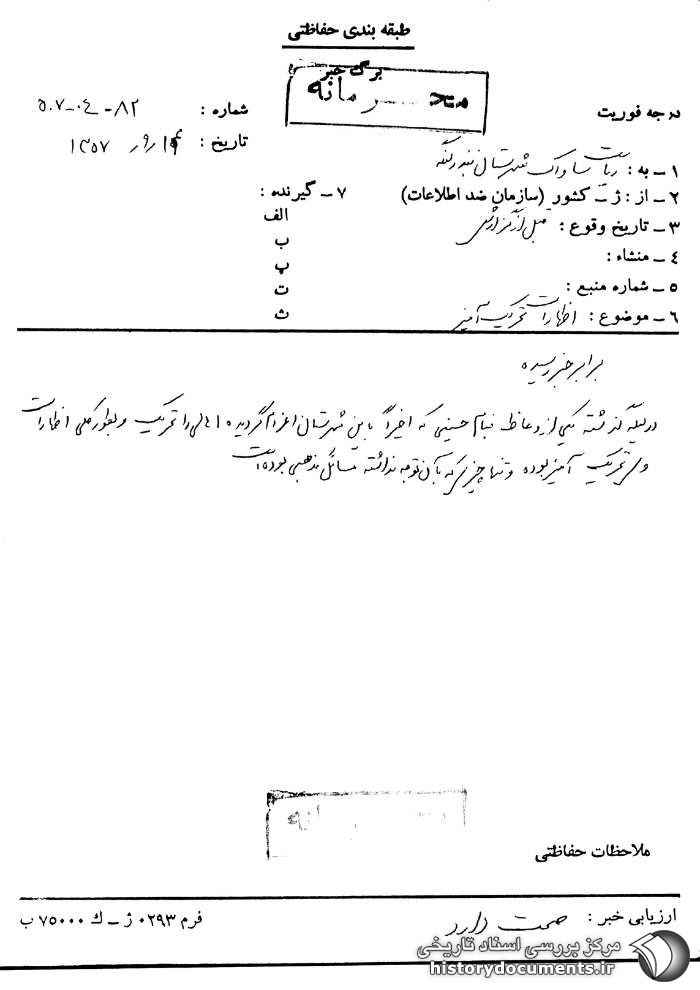 طبقه بندی حفاظتی
برگ خبر
محرمانه
درجه فوریت
شماره : ۸۲-۰۴-۵۰۷
تاریخ : ۱۳۵۷
۱ – به : ریاست ساواک شهرستان بندرلنگه
۲ – از : ژ – کشور (سازمان ضد اطلاعات)
۳ – تاریخ وقوع : قبل از گزارش
۴ – منشاء :
۵ – شماره منبع :
۶ – موضوع : اظهارات تحریک آمیز
۷ – گیرنده :
الف
ب
پ
ت
ث
برابر خبر رسیده
در لیله گذشته یکی از وعاظ بنام حسینی که اخیراً باین شهرستان اعزام گردیده اهالی را تحریک و بطور کلی اظهارات
وی تحریک آمیز بوده و تنها چیزی که بآن توجه نداشته مسائل مذهبی بوده است
محرمانه
ملاحظات حفاظتی
ارزیابی خبر : صحت دارد
فرم ۰۲۹۳ ژ – ک ۷۵۰۰۰ ب
مرکز بررسی اسناد تاریخی
historydocuments.ir